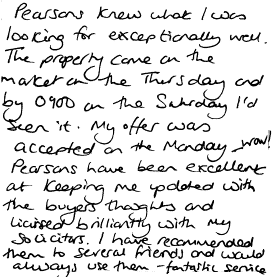 Pearsons knew what I was
looking for exceptionally well.
The property came on the
market on the Thursday and
by 0900 on the Saturday I'd
seen it. My offer was
accepted on the Monday wow!
Pearsons have been excellent
at keeping me updated with
the buyers thoughts and
liaised brilliantly with my
solicitors. I have recommended
them to several friends and would
always use them - fantastic service